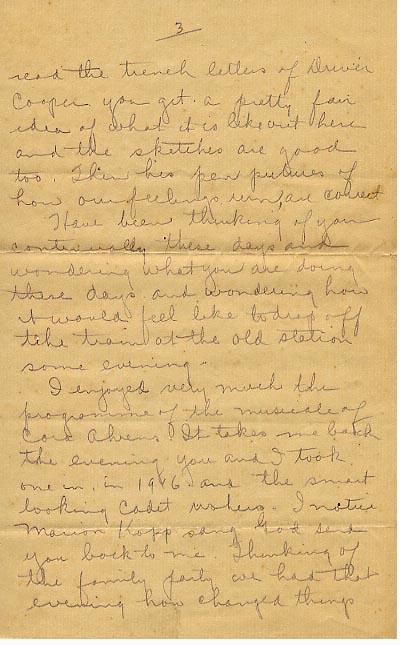 3
read the trench letters of Driver
Cooper you get a pretty fair
idea of what it is like out here
and the sketches are good
too. Then his pen pictures of
how our feelings run, are correct
Have been thinking of you
continually these days and
wondering what you are doing
these days and wondering how
it would feel like to drop off
the train at the old station
some evening.
I enjoyed very much the
programme of the musicale of
Cora Ahrens! It takes me back
the evening you and I took
one in, in 1916 and the smart
looking Cadet ushers. I notice
Marion Kopp sang God send
you back to me. Thinking of
the family party we had that
evening how changed things